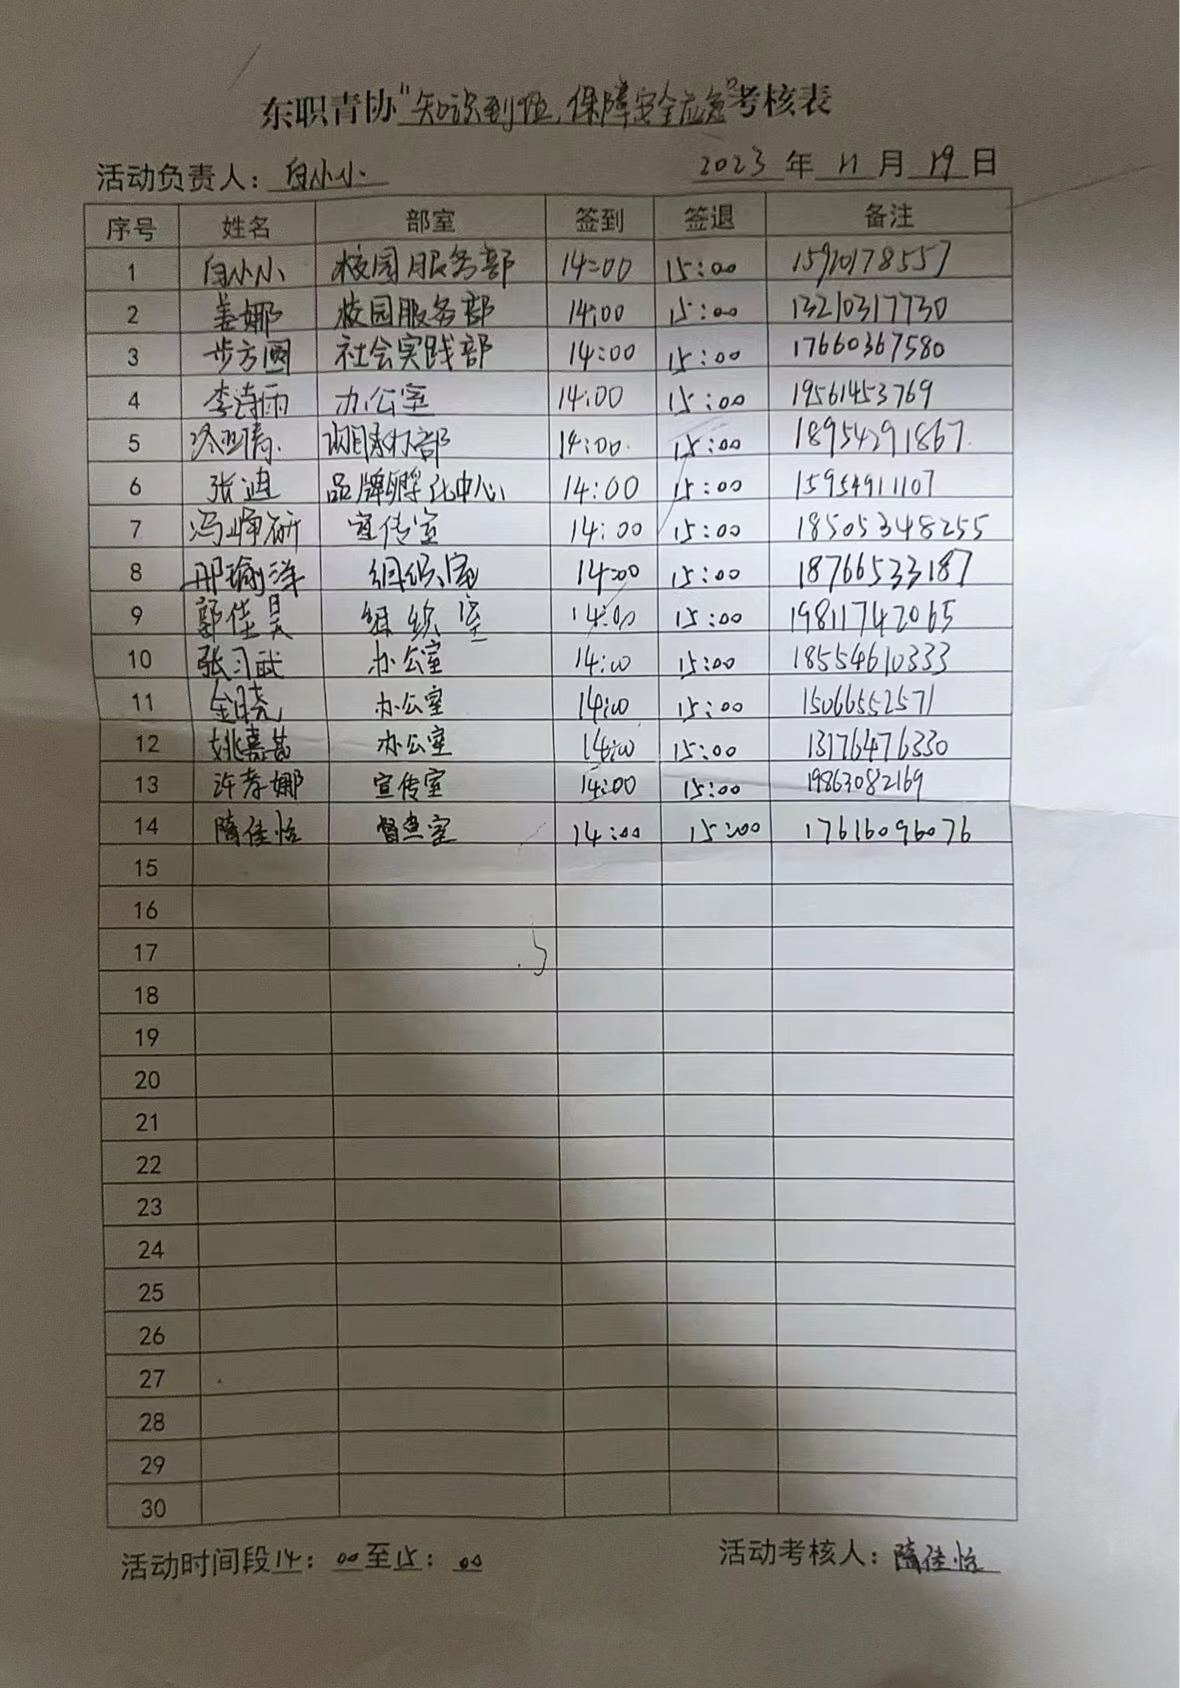 东职青协"知识到位,保障安全应急"考核表
活动负责人:白小小 2023年11月19日
序号 姓名 部室 签到 签退 备注
1 白小小 校园服务部 14:00 15:00 15910178557
2 姜娜 校园服务部 14:00 15:00 13210317730
3 步方圆 社会实践部 14:00 15:00 17660367580
4 李诗雨 办公室 14:00 15:00 19561453769
5 14:00 15:00 18954291867
6 张迪 品牌孵化中心 14:00 15:00 15954911107
7 冯峥研 宣传室 14:00 15:00 18505348255
8 邢瑜洋 组织室 14:00 15:00 18766533187
9 郭佳昊 组织室 14:00 15:00 19811742065
10 张习武 办公室 14:00 15:00 18554610333
11 金晓 办公室 14:00 15:00 15066552571
12 姚嘉茜 办公室 14:00 15:00 13176476330
13 许孝娜 宣传室 14:00 15:00 19863082169
14 隋佳怡 督查室 14:00 15:00 17616096076
15
16
17
18
19
20
21
22
23
24
25
26
27
28
29
30
活动时间段14:00至15:00 活动考核人:隋佳怡